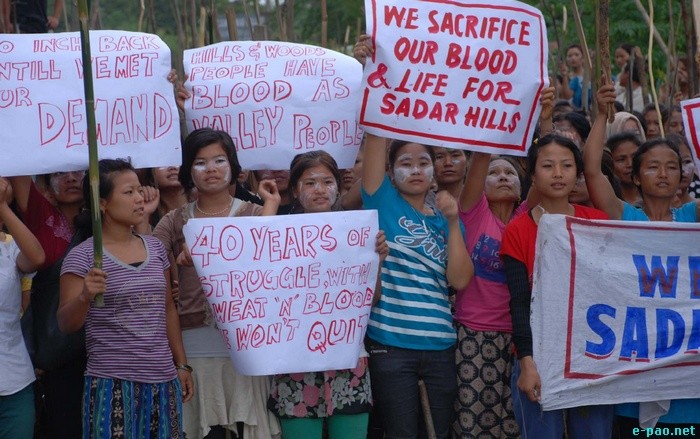 INCH BACK
UNTILL WE MET
OUR DEMAND
HILLS & WOODS
PEOPLE HAVE
BLOOD AS
VALLEY PEOPLE
WE SACRIFICE
OUR BLOOD
& LIFE FOR
SADAR HILLS
40 YEARS OF
STRUGGLE, WITH
SWEAT 'N' BLOOD
WE WON'T QUIT
WE
SADA
e-pao.net